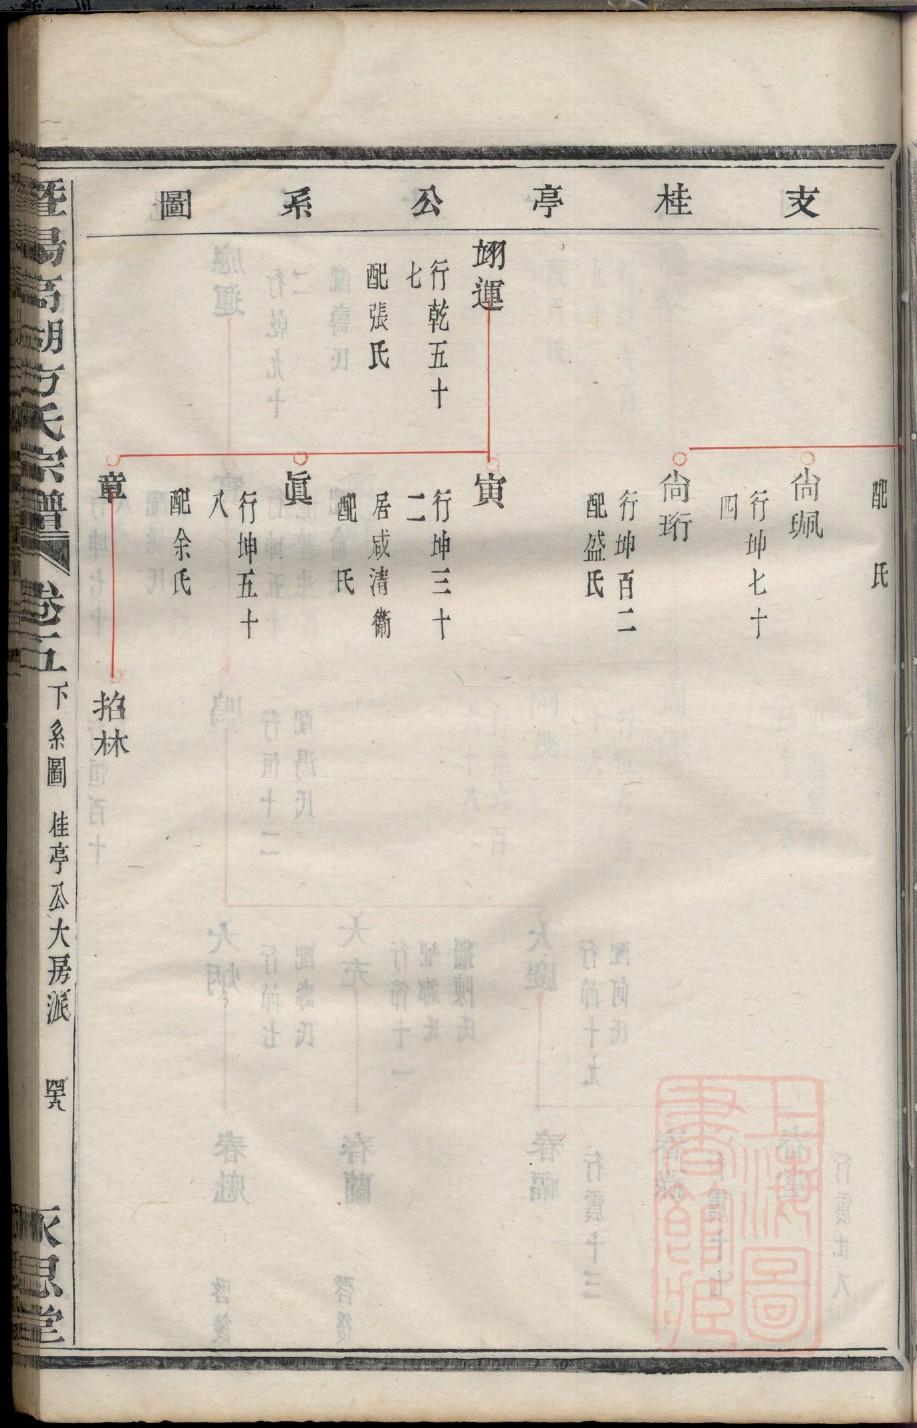 支桂亭公系圖
配　氏
尙珮
行坤七十
四
尙珩
行坤百二
配盛氏
翊運
行乾五十
七
配張氏
寅
行坤三十
二
居咸清衞
配　氏
眞
行坤五十
八
配余氏
章
拍林
暨陽高湖方氏宗譜
卷五
下系圖
桂亭公大房派
永思堂
上海圖
書館藏